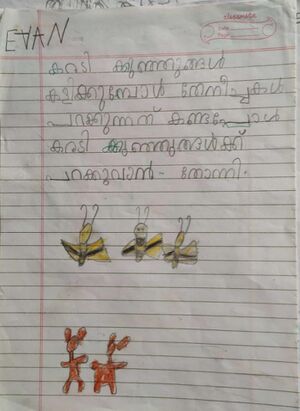 EVAN
classmate
Date
Page
കരടി കുഞ്ഞുങ്ങൾ
കളിക്കുമ്പോൾ തേനീച്ചകൾ
പറക്കുന്നത് കണ്ടപ്പോൾ
കരടി കുഞ്ഞുങ്ങൾക്ക്
പറക്കുവാൻ തോന്നി.